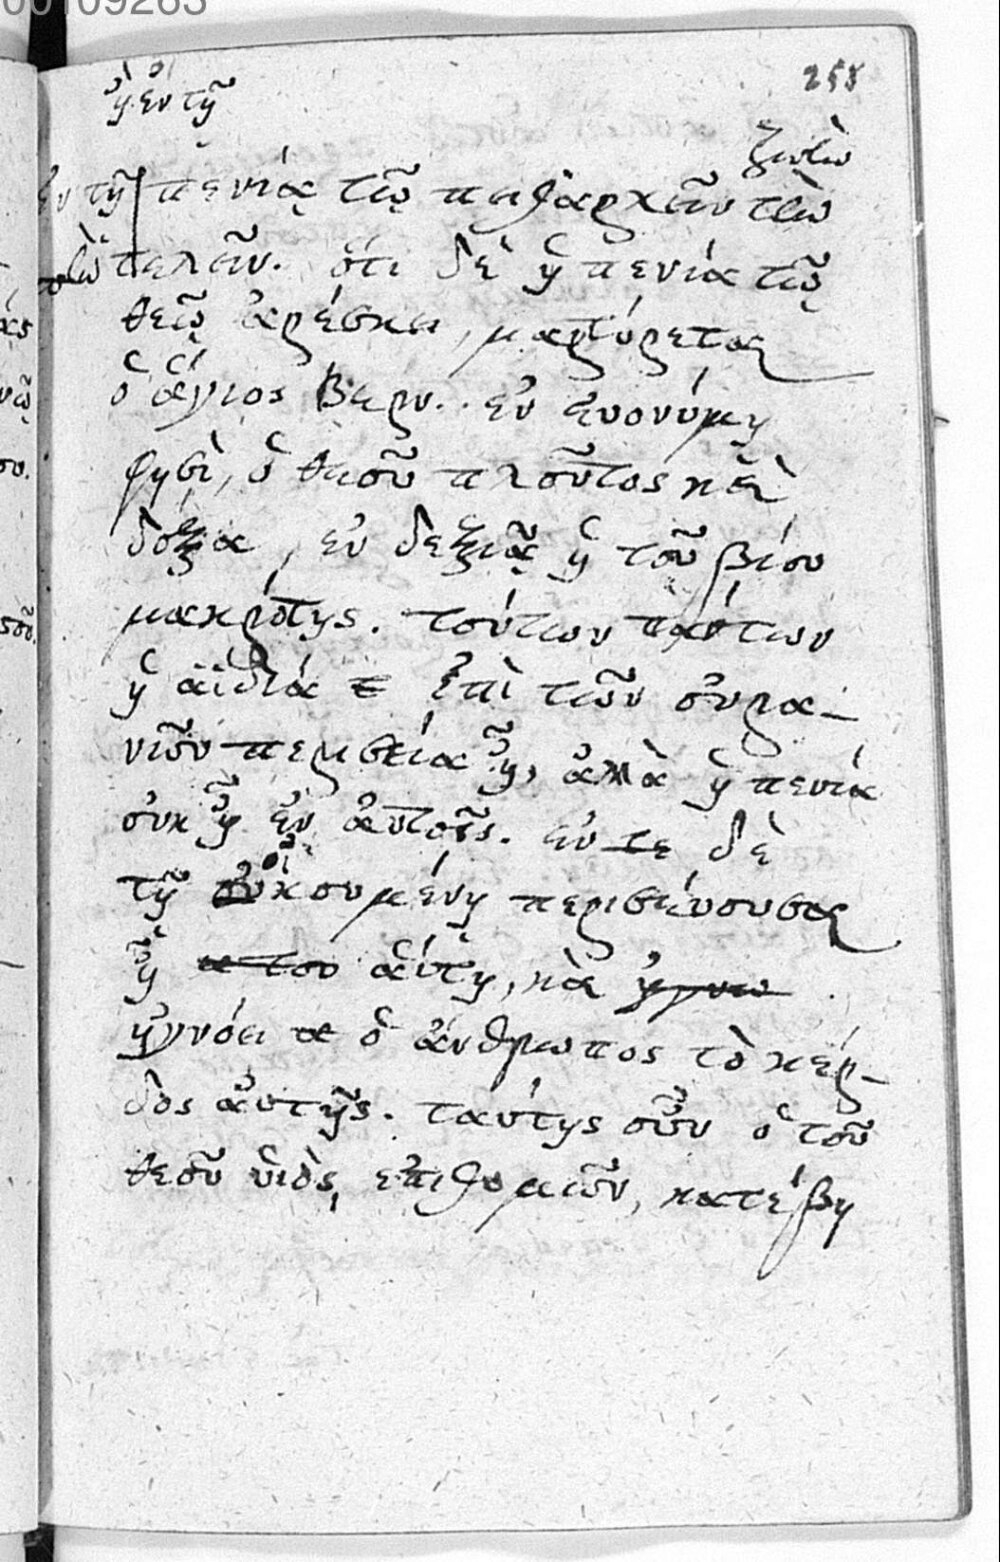 00109263
258
ἢ ἐν τῇ
ζωὴν
ἐν τῇ πενίᾳ τῷ πειθαρχεῖν τὴν
τελεῖν. ὅτι δὲ ἡ πενία τῷ
θεῷ ἀρέσκει, μαρτύρεται
ὁ ἅγιος Βερν.. ἐν εὐονύμῃ
φησὶ, ὁ θεοῦ πλοῦτος καὶ
δόξα, ἐν δεξιᾷ ἡ τοῦ βίου
μακρότης. τούτων πάντων
ἡ ἀϊδία ἐπὶ τῶν οὐρα-
νιῶν περισεία ἦ, ἀλλὰ ἡ πενία
οὐκ ἦ ἐν αὐτοῖς. ἐν τε δὲ
τῇ οἰκουμένῃ περισεύουσα
ἦ αὕτη, καὶ
ἠγνόει ὁ ἄνθρωπος τὸ κέρ-
δος αὐτῆς. ταύτης οὖν ὁ τοῦ
θεοῦ υἱὸς, ἐπιθυμιῶν, κατέβη